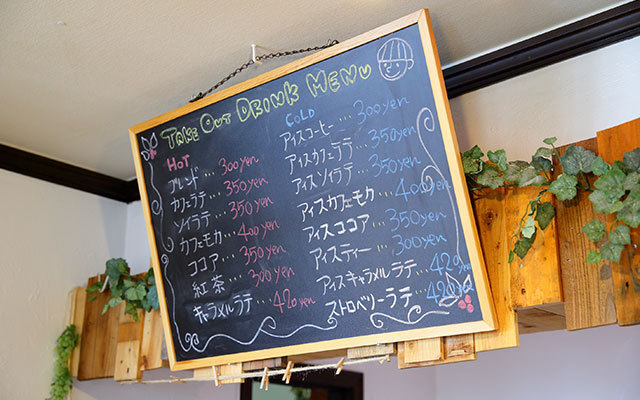 TAKE OUT DRINK MENU
HOT
ブレンド … 300yen
カフェラテ … 350yen
ソイラテ … 350yen
カフェモカ … 400yen
ココア … 350yen
紅茶 … 300yen
キャラメルラテ … 420yen
COLD
アイスコーヒー … 300yen
アイスカフェラテ … 350yen
アイスソイラテ … 350yen
アイスカフェモカ … 400yen
アイスココア … 350yen
アイスティー … 300yen
アイスキャラメルラテ … 420yen
ストロベリーラテ … 420yen